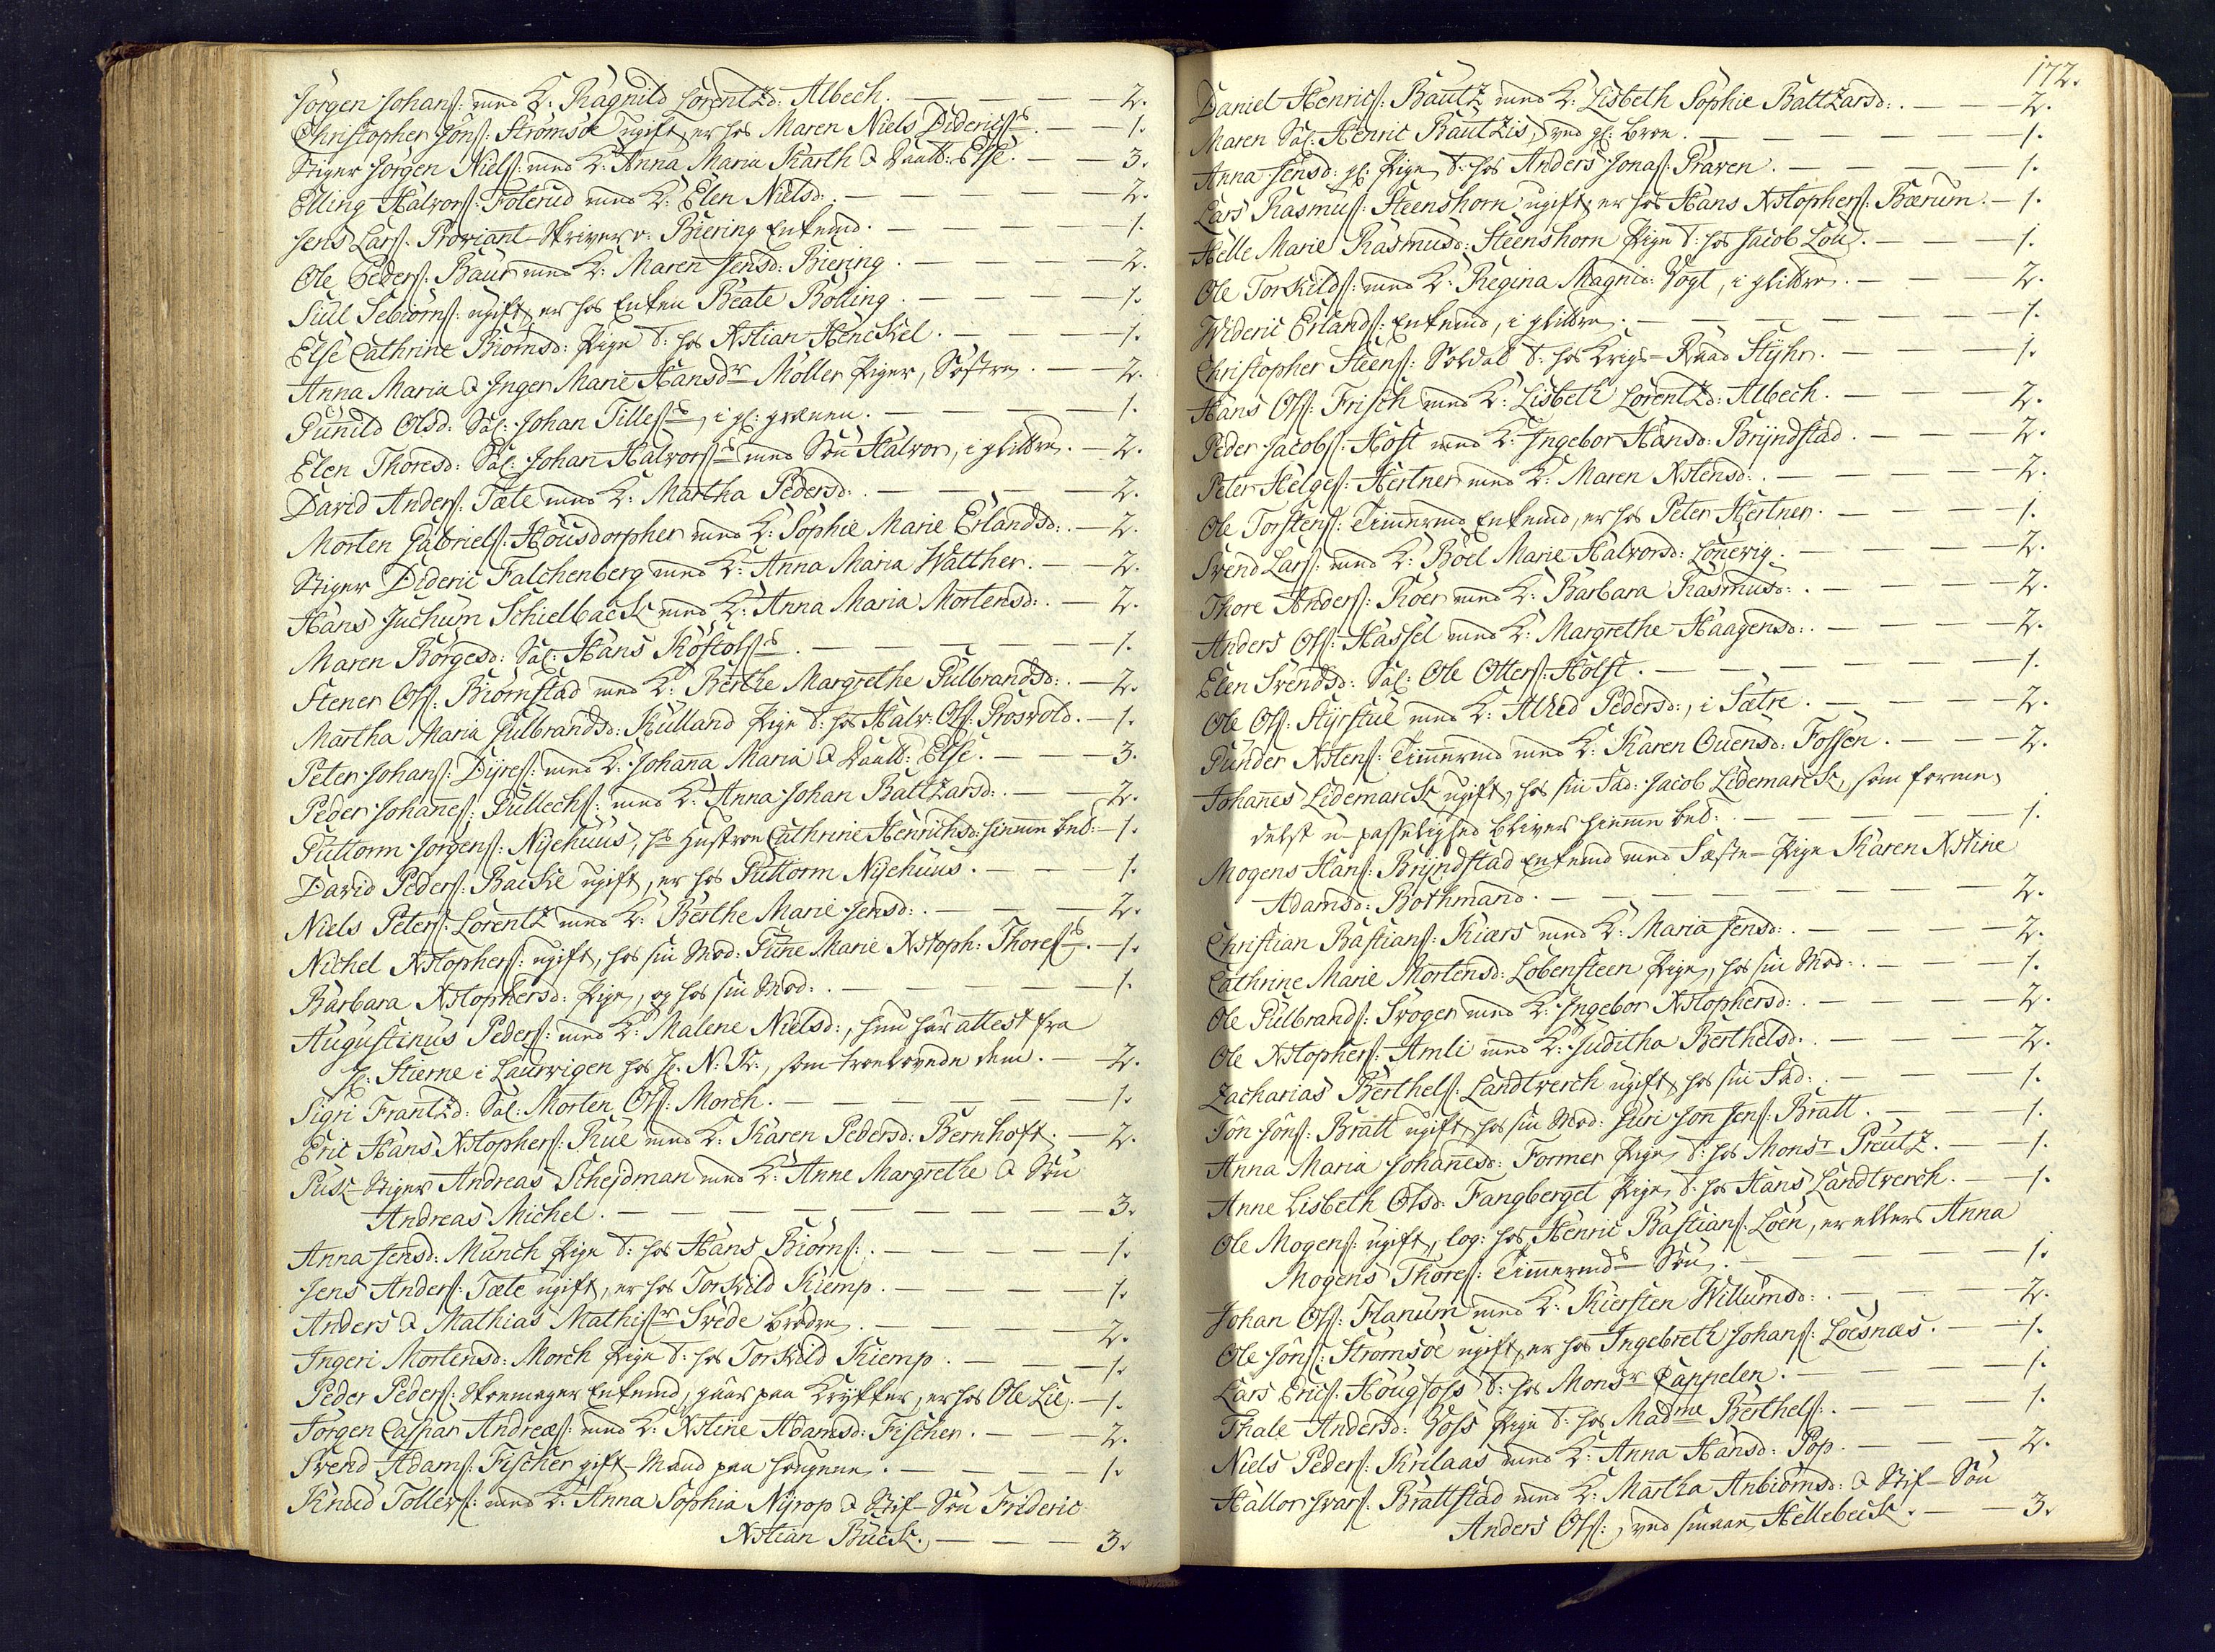 Jörgen Johanſ: med K: Ragnild Lorentzd: Albech. — 2.
Christopher Jönſ: Strömsöe ugift, er hos Maren Niels Didericſs. — 1.
Stiger Jörgen Nielſ: med K: Anna Maria Karth & Daatt: Else. — 3.
Elling Halvorſ: Foterud med K: Elen Nielsd: — 2.
Jens Larſ: Proviant-Skriver v: Biering Enkemd. — 1.
Ole Pederſ: Baur med K: Maren Jensd: Biering. — 2.
Siul Sebiörnſ: ugift, er hos Enken Beate Bölling. — 1.
Else Cathrine Biörnsd: Pige T: hos Xstian Henckel. — 1.
Anna Maria & Inger Marie Hansdr Möller Piger, Söstre. — 2.
Gunild Olsd: Sal: Johan Tilleſs, i gl: — 1.
Elen Thoresd: Sal: Johan Halvorſs med Sön Halvor, i glittre. — 2.
David Anderſ: Tæte med K: Martha Pedersd: — 2.
Morten Gabrielſ: Housdorpher med K: Sophie Marie Erlandsd: — 2.
Stiger Dideric Falchenberg med K: Anna Maria Walther. — 2.
Hans Juchum Schielback med K: Anna Maria Mortensd: — 2.
Maren Börgesd: Sal: Hans Röstolſs. — 1.
Stener Olſ: Biörnstad med K: Berthe Margrethe Gulbrandsd: — 2.
Martha Maria Gulbrandsd: Hulland Pige T: hos Halv: Olſ: Groswold. — 1.
Peter Johanſ: Dijreſ: med K: Johana Maria & Daatt: Else. — 3.
Peder Johaneſ: Gullechſ: med K: Anna Johan Baltzarsd: — 2.
Guttorm Jörgenſ: Nijehuus, hs Hustroe Cathrine Henrichsd: hiemme bed: — 1.
David Pederſ: Backe ugift, er hos Guttorm Nijehuus. — 1.
Niels Peterſ: Lorentz med K: Berthe Marie Jensd: — 2.
Nichel Xstopherſ: ugift, hos sin Mod: Gune Marie Xstoph: Thoreſs. — 1.
Barbara Xstophersd: Pige, og hos sin Mod: — 1.
Augustinus Pederſ: med K: Malene Nielsd:, hun har attest fra
Hr: Stierne i Laurvigen hos H: N: K:, som troelovede dem. — 2.
Sigri Frantzd: Sal: Morten Olſ: Morch. — 1.
Eric Hans Xstopherſ: Rue med K: Karen Pedersd: Bernhoft. — 2.
Puk-Stiger Andreas Schejdman med K: Anne Margrethe & Sön
Andreas Michel. — 3.
Anna Jensd: Munch Pige T: hos Hans Biörnſ: — 1.
Jens Anderſ: Tæte ugift, er hos Torkild Kiemp. — 1.
Anders & Mathias Mathiſsr Svede brödre. — 2.
Ingeri Mortensd: Morch Pige T: hos Torkild Kiemp. — 1.
Peder Pederſ: Skomager Enkemd, gaar paa Krykker, er hos Ole Lie. — 1.
Jörgen Caspar Andreaſ: med K: Xstine Adamsd: Fischer. — 2.
Svend Adamſ: Fischer gift-Mand paa Haugene. — 1.
Knud Tollefſ: med K: Anna Sophia Nijrop & Stif-Sön Frideric
Xstian Buck. — 3.
172.
Daniel Henricſ: Bautz med K: Lisbeth Sophie Baltzarsd: — 2.
Maren Sal: Henric Bautzis, ved gl: broe. — 1.
Anna Jensd: gl: Pige T: hos Anders Jonaſ: Graven. — 1.
Lars Rasmuſ: Steenshorn ugift, er hos Hans Xstopherſ: Bærum. — 1.
Helle Marie Rasmusd: Steenshorn Pige T: hos Jacob Lou. — 1.
Ole Torkildſ: med K: Regina Magnid: Vogt, i glittre. — 2.
Wideric Erlandſ: Enkemd, i glittre. — 1.
Christopher Steenſ: Soldat T: hos Krigs-Raad Styhr. — 1.
Hans Olſ: Frisch med K: Lisbeth Lorentzd: Albech. — 2.
Peder Jacobſ: Host med K: Ingebor Hansd: Brijndstad. — 2.
Peter Helgeſ: Hertner med K: Maren Xstensd: — 2.
Ole Torstenſ: Timmermd Enkemd, er hos Peter Hertner. — 1.
Svend Larſ: med K: Boel Marie Halvorsd: Lonevig. — 2.
Thore Anderſ: Röer med K: Barbara Rasmusd: — 2.
Anders Olſ: Hassel med K: Margrethe Haagensd: — 2.
Elen Svendsd: Sal: Ole Otterſ: Holst. — 1.
Ole Olſ: Styrstue med K: Alhed Pedersd:, i Sætre. — 2.
Gunder Xstenſ: Timmermd med K: Karen Ouensd: Fossen. — 2.
Johanes Lidemarck ugift, hos sin Fad: Jacob Lidemarck, som forme-
delst u-passelighed bliver hiemme bed: — 1.
Mogens Hanſ: Brijndstad Enkemd med Fæste-Pige Karen Xstine
Adamsd: Bothmand. — 2.
Christian Bastianſ: Kiærs med K: Maria Jensd: — 2.
Cathrine Marie Mortensd: Lobensteen Pige, hos sin Mod: — 1.
Ole Gulbrandſ: Svoger med K: Ingebor Xstophersd: — 2.
Ole Xstopherſ: Amli med K: Juditha Berthelsd: — 2.
Zacharias Berthelſ: Landtverch ugift, hos sin Fad: — 1.
Jön Jönſ: Bratt ugift, hos sin Mod: Guri Jon Jenſ: Bratt. — 1.
Anna Maria Johanesd: Former Pige, T: hos Monsr Preutz. — 1.
Anne Lisbeth Olsd: Fangberget Pige, T: hos Hans Landtverch. — 1.
Ole Mogenſ: ugift, log: hos Henric Bastianſ: Löen, er ellers Anna
Mogens Thoreſ: Timmermds Sön. — 1.
Johan Olſ: Flanum med K: Kiersten Willumsd: — 2.
Ole Jönſ: Strömsöe ugift, er hos Ingebreth Johanſ: Loesnæs. — 1.
Lars Ericſ: Hougfoss T: hos Monsr Cappelen. — 1.
Thale Andersd: Voss Pige T: hos Madme Berthelſ: — 1.
Niels Pederſ: Krilaas med K: Anna Hansd: Pop. — 2.
Hallor Ivarſ: Brattstad med K: Martha Anbiörnsd: & Stif-Sön
Anders Olſ:, ved Hellebeck. — 3.